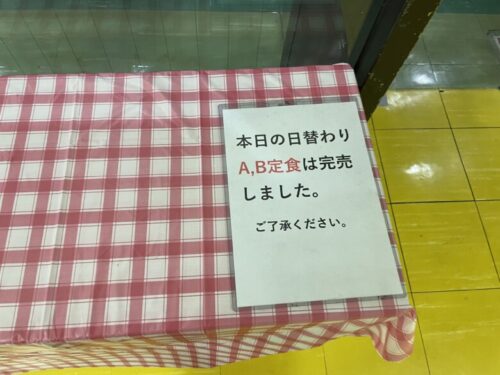 本日の日替わり
A,B定食は完売
しました。
ご了承ください。